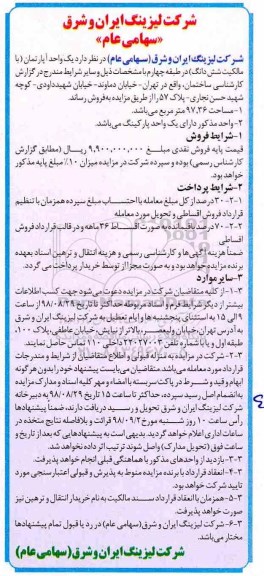 شرکت لیزینگ ایران و شرق
«سهامی عام»
شرکت لیزینگ ایران و شرق (سهامی عام) در نظر دارد یک واحد آپارتمان (با
مالکیت شش دانگ) در طبقه چهارم با مشخصات ذیل و سایر شرایط مندرج در گزارش
کارشناسی ساختمان، واقع در تهران - خیابان دماوند - خیابان شهید داودی - کوچه
شهید حسن نجاری - پلاک ۵۷ را از طریق مزایده به فروش رساند.
۱- مساحت ۹۷,۳۶ متر مربع می‌باشد.
۲- واحد مذکور دارای یک واحد پارکینگ می‌باشد.
۱- شرایط فروش
قیمت پایه فروش نقدی مبلغ ۹,۹۰۰,۰۰۰,۰۰۰ ریال (مطابق گزارش
کارشناس رسمی) بوده و سپرده شرکت در مزایده میزان ۱۰٪ مبلغ پایه مذکور
خواهد بود.
۲- شرایط پرداخت
۲-۱- ۳۰ درصد از کل مبلغ معامله با احتساب مبلغ سپرده همزمان با تنظیم
قرارداد فروش اقساطی و تحویل مورد معامله
۲-۲- ۷۰ درصد باقیمانده به صورت اقساط ۳۶ ماهه و در قالب قرارداد فروش
اقساطی
ضمناً هزینه آگهی‌ها و کارشناسی رسمی و هزینه انتقال و ترهین اسناد بعهده
برنده مزایده خواهد بود و به صورت مجزا از توسط خریدار پرداخت می گردد.
۳- سایر موارد
۳-۱- از کلیه متقاضیان شرکت در مزایده دعوت می‌شود جهت کسب اطلاعات
بیشتر از دیگر شرایط فرم و اسناد مربوطه حداکثر تا تاریخ ۹۸/۰۸/۲۹ از ساعت
۹ الی ۱۵ به استثنای پنجشنبه ها و ایام تعطیل به شرکت لیزینگ ایران و شرق
به آدرس تهران، خیابان ولیعصر، بالاتر از نیایش، خیابان عاطفی، پلاک ۱۰۰،
طبقه اول و یا با شماره تلفن ۲۲۰۲۷۰۰۳ داخلی ۱۱۰ تماس حاصل نمایند.
۳-۲- شرکت در مزایده به منزله قبول و اطلاع متقاضیان از شرایط و مندرجات
قرارداد مورد معامله می‌باشد. متقاضیان می‌بایست پیشنهاد خود را بدون هرگونه
ابهام و قید و شروط در پاکت سربسته با امضاء و مهر کلیه اسناد و مدارک مزایده
به انضمام اصل رسید سپرده، حداکثر تا ساعت ۱۵ تاریخ ۹۸/۰۸/۲۹ به دبیرخانه
شرکت لیزینگ ایران و شرق تحویل و رسید دریافت دارند، ضمناً پیشنهادها
رأس ساعت ۱۰ روز شنبه مورخ ۹۸/۰۹/۲ قرائت و بلافاصله نتایج متخذه در
ساعات اداری اعلام خواهد گردید. بدیهی است به پیشنهادهایی که بعد از تاریخ و
ساعت فوق (تحویل مدارک) واصل شوند ترتیب اثر داده نخواهد شد.
۳-۳- بازدید از واحدهای مذکور با هماهنگی قبلی انجام خواهد پذیرفت.
۳-۴- انعقاد قرارداد با برنده مزایده منوط به پذیرش و قبولی اعتبارسنجی مورد
تایید شرکت خواهد بود.
۳-۵- همزمان با انعقاد قرارداد سند مالکیت به نام خریدار انتقال و ترهین نیز
صورت خواهد پذیرفت.
۳-۶- شرکت لیزینگ ایران و شرق (سهامی عام) در رد یا قبول تمام پیشنهادها
مختار می‌باشد.
شرکت لیزینگ ایران و شرق (سهامی عام)